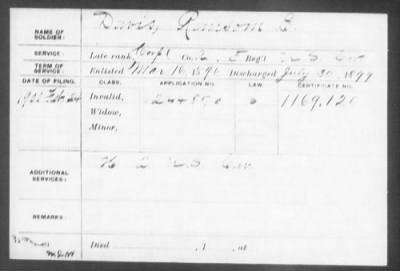 NAME OF SOLDIER: Davis, Ransom L.
SERVICE: Late rank, Corpl Co. 5 Reg't U S Cav
TERM OF SERVICE: Enlisted Mar 16, 1896 Discharged July 30, 1899
DATE OF FILING. CLASS. APPLICATION NO. LAW. CERTIFICATE NO.
Invalid, 1169,120
Widow,
Minor,
ADDITIONAL SERVICES: 2 U.S. Cav
REMARKS:
Died , 1 , at